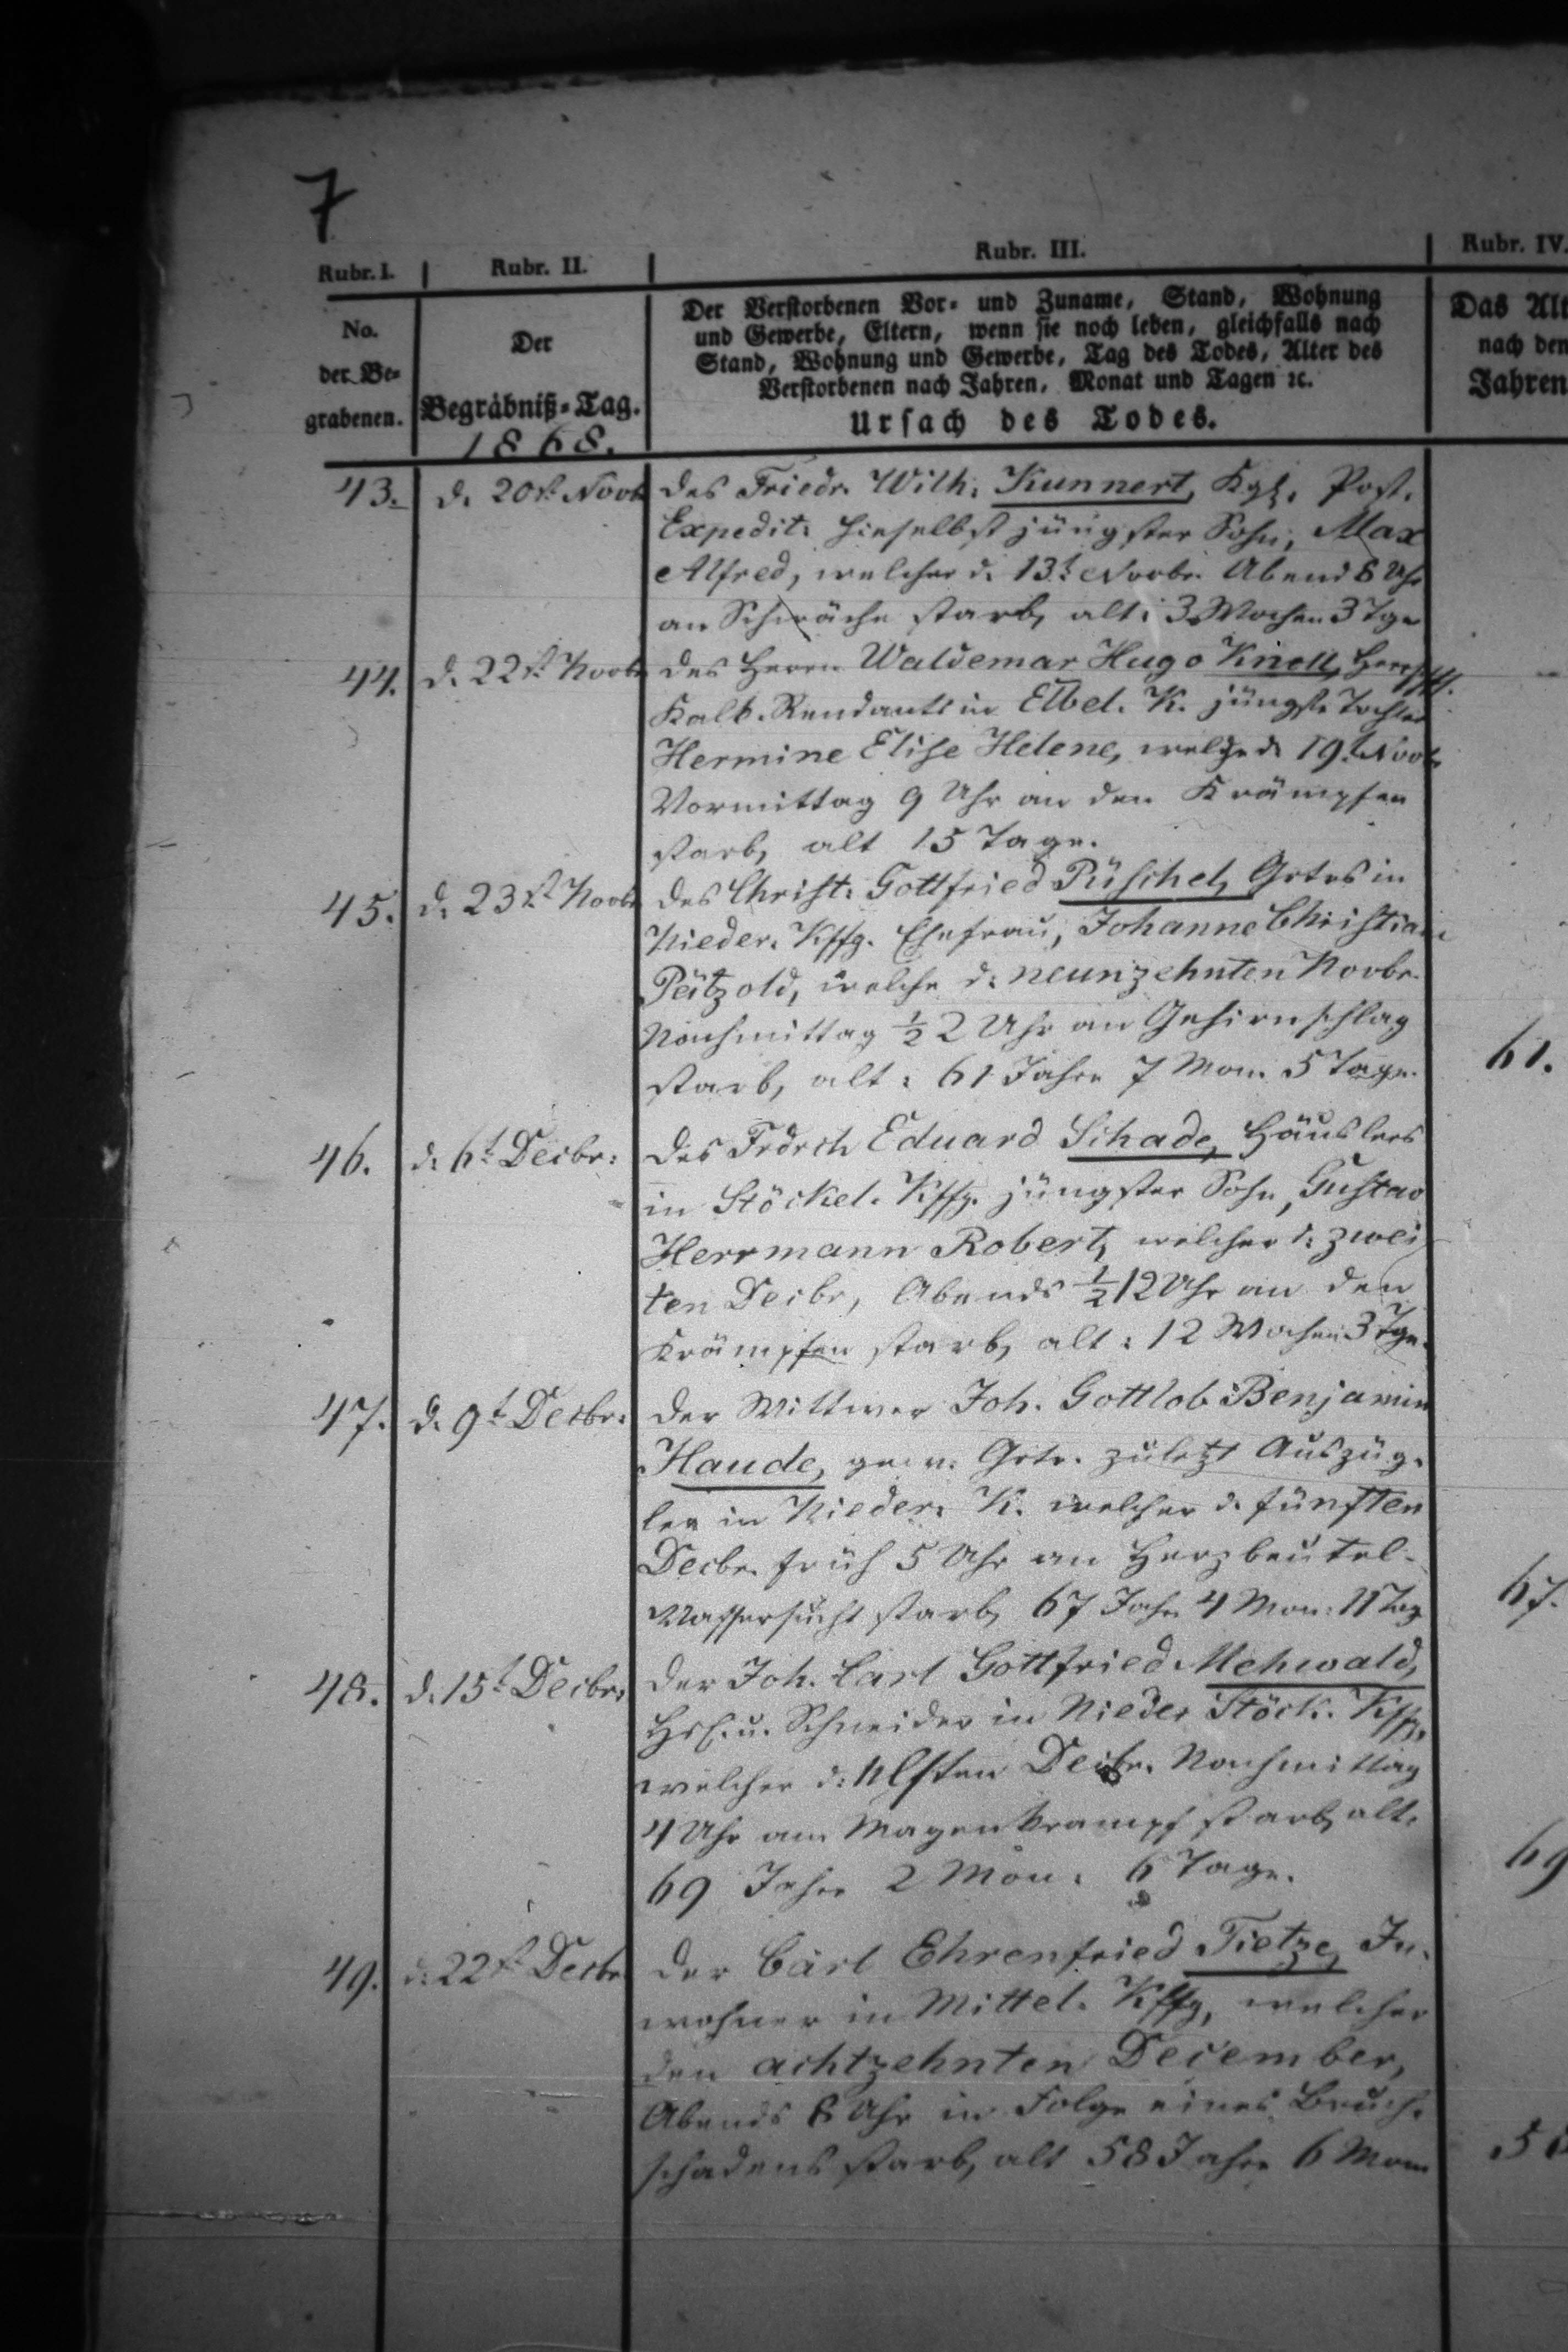 7
Rubr. I. Rubr. II. Rubr. III. Rubr. IV.
No. der Be= grabenen.
Der Begräbniß=Tag. 1868.
Der Verstorbenen Vor= und Zuname, Stand, Wohnung
und Gewerbe, Eltern, wenn sie noch leben, gleichfalls nach
Stand, Wohnung und Gewerbe, Tag des Todes, Alter des
Verstorbenen nach Jahren, Monat und Tagen ꝛc.
Ursach des Todes.
Das Alt
nach den
Jahren
43. d. 20st. Novbr des Friedr. Wilh. Kunnert, Kgl. Post.
Expedit. hieselbst jüngster Sohn, Max
Alfred, welcher d. 13t. Novbr. Abend 8 Uhr
an Schwäche starb, alt: 3 Wochen 3 Tge
44. d. 22st. Novbr des Herrn Waldemar Hugo Knoll, Herrsch.
Kalk. Rendants in Elbel. K. jüngste Tochter
Hermine Elise Helene, welche d. 19t. Novbr
Vormittag 9 Uhr an den Krämpfen
starb, alt 15 Tage.
45. d. 23st. Novbr des Christ. Gottfried Püschel, Grtrs in
Nieder. Kffg. Ehefrau, Johanne Christiane
Pätzold, welche d. neunzehnten Novbr.
Nachmittag ½ 2 Uhr an Gehirnschlag
starb, alt: 61 Jahre 7 Mon. 5 Tage. 61.
46. d. 6t. Decbr: des Frdrch Eduard Schade, Häuslers
in Stöckel. Kffg. jüngster Sohn, Gustav
Herrmann Robert, welcher d. zwei
ten Decbr, Abends ½ 12 Uhr an den
Krämpfen starb, alt: 12 Wochen 3 Tge.
47. d. 9t. Decbr: der Wittwer Joh. Gottlob Benjamin
Haude, gew. Grtr. zuletzt Auszüg.
ler in Nieder. K. welcher d. fünften
Decbr. früh 5 Uhr an Herzbeutel-
Wassersucht starb, 67 Jahr 4 Mon: 11 Tag 67.
48. d. 15t. Decbr: der Joh. Carl Gottfried Mehwald,
Hsl. u. Schneider in Nieder Stöck. Kffg.
welcher d: 11lften Decbr. Nachmittag
4 Uhr am Magenkrampf starb, alt:
69 Jahre 2 Mon: 6 Tage. 69
49. d: 22st. Decbr der Carl Ehrenfried Tietze, In.
wohner in Mittel. Kffg, welcher
den achtzehnten December,
Abends 8 Uhr in Folge eines Bruch.
schadens starb, alt 58 Jahre 6 Mon